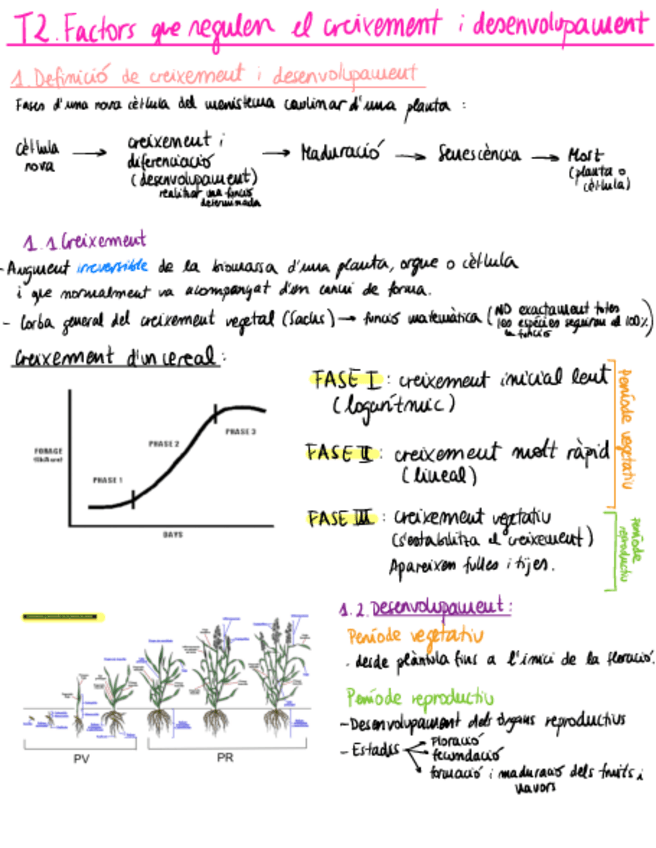 T2. Factors que regulen el creixement i desenvolupament
1. Definició de creixement i desenvolupament
Fases d'una nova cèl·lula del meristema caulinar d'una planta :
cèl·lula nova → creixement i diferenciació (desenvolupament) realitzar una funció determinada → Maduració → Senescència → Mort (planta o cèl·lula)
1.1 Creixement
- Augment irreversible de la biomassa d'una planta, orgue o cèl·lula
i que normalment va acompanyat d'un canvi de forma.
- Corba general del creixement vegetal (Sachs) → funció matemàtica (NO exactament totes les espècies segueixen al 100% la funció)
Creixement d'un cereal :
FORAGE
PHASE 1
PHASE 2
PHASE 3
DAYS
FASE I : creixement inicial lent
(logarítmic)
FASE II : creixement molt ràpid
(lineal)
FASE III : creixement vegetatiu
(s'estabilitza el creixement)
Apareixen fulles i tijes.
Període vegetatiu
Període reproductiu
PV
PR
1.2. Desenvolupament :
Període vegetatiu
. desde plàntula fins a l'inici de la floració.
Període reproductiu
- Desenvolupament dels òrgans reproductius
- Estadis
Floració
fecundació
formació i maduració dels fruits i
llavors